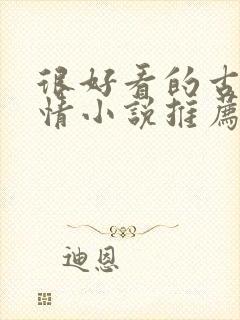 很好看的古
情小說推薦
迪恩